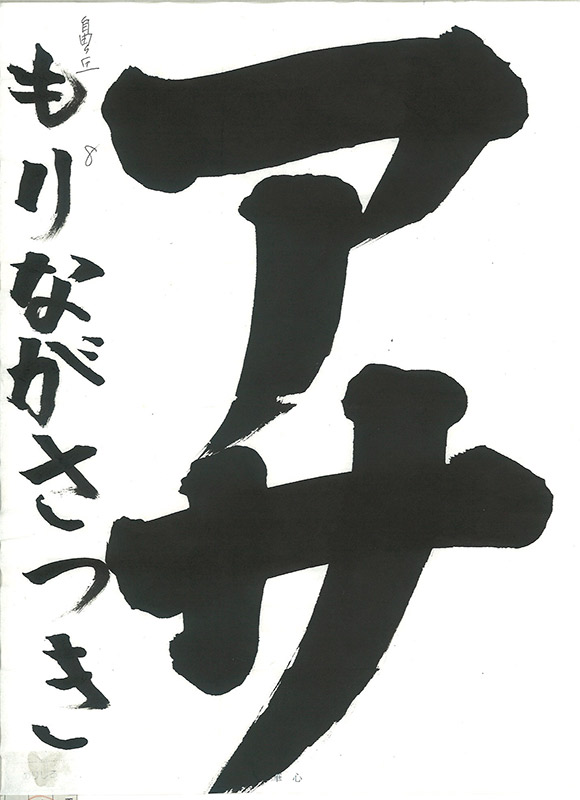 アサ
もりながさつき
8
心